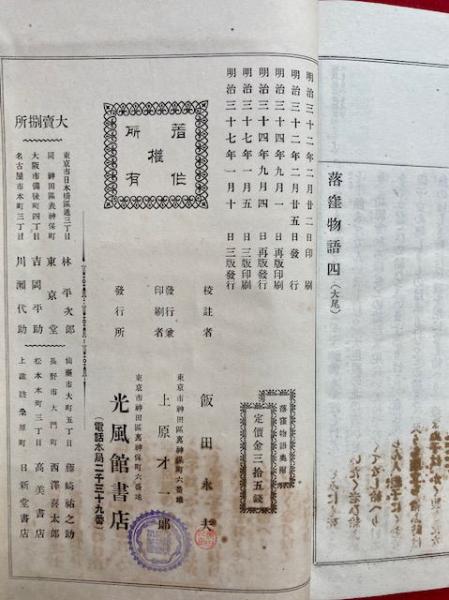 落窪物語四(大尾)
明治三十二年二月廿二日印刷
明治三十二年二月廿五日發行
明治三十四年九月一日再版印刷
明治三十四年九月四日再版發行
明治三十七年一月五日三版印刷
明治三十七年一月十日三版發行
著作
權
所有
落窪物語奥附
定價金三拾五錢
校註者
飯田永夫
東京市神田區裏神保町六番地
發行兼
印刷者
上原才一郎
東京市神田區裏神保町六番地
發行所
光風館書店
(電話本局二千三十九番)
大賣捌所
東京市日本橋區通三丁目 林平次郎
同 神田區表神保町 東京堂
大阪市備後町四丁目 吉岡平助
名古屋市本町三丁目 川瀬代助
仙臺市大町五丁目 藤崎祐之助
長野市大門町 西澤喜太郎
松本本町三丁目 高美書店
上諏訪桑原町 日新堂書店